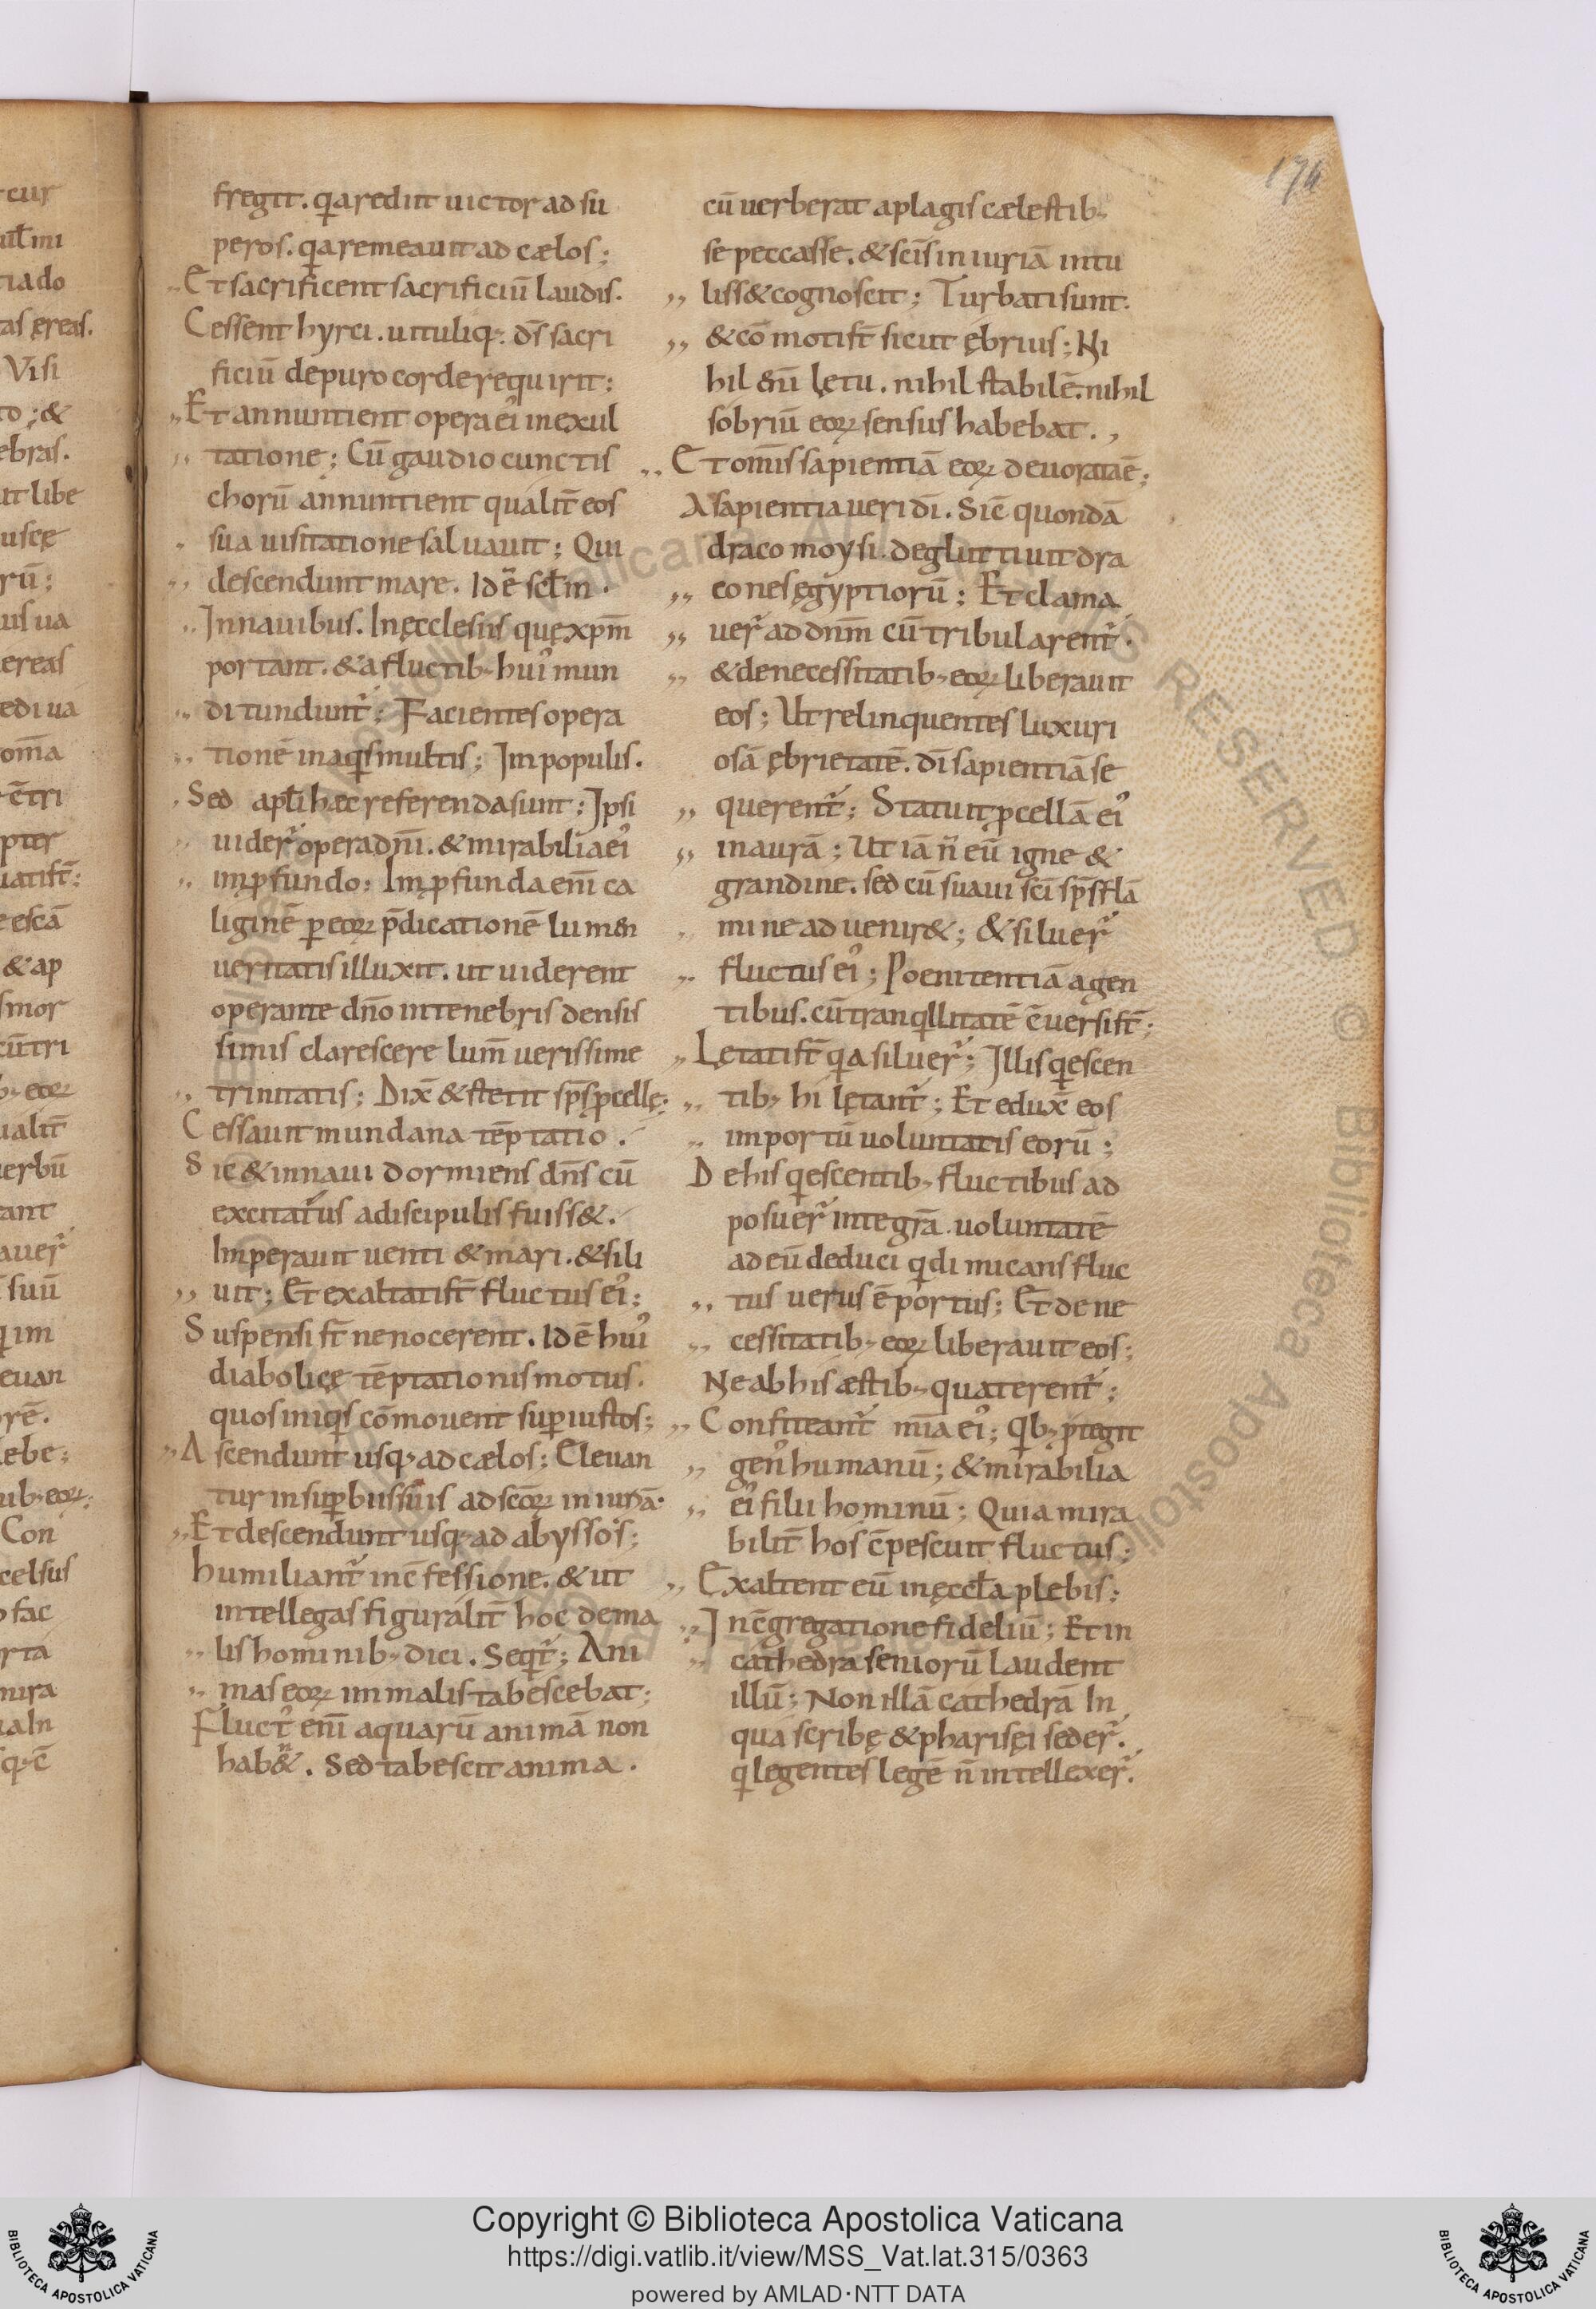 fregit. q̄aredút uictor ad su
peros. q̄aremeauit ad cælos;
Et sacrificent sacrificiū laudis.
Cessent hyrci. uituliq;. dš sacri
ficiū depuro corde requirit:
,, Et annuntient opera ei᾽ in exul
,, tatione; Cū gaudio cunctis
chorū annuntient qualit̄ eos
sua uisitatione saluauit; Qui
,, descendunt mare. Idē sc̄lm.
,, In nauibus. In ęcclesiis quę xp̄m
portant. & a fluctib; hui᾽ mun
,, di tundunt᾽; Facientes opera
,, tionē in aqis multis; Im populis.
, Sed apłi hec referenda sunt: Ipsi
,, uider᾽ opera dn̄i. & mirabilia ei᾽
,, imp̱fundo: Imp̱funda enī ca
liginē p̱ eoꝝ p̄dicationē lumen
ueritatis illuxit. ut uiderent
operante dn̄o in tenebris densis
simis clarescere lum̄ uerissime
,, trinitatis; Dix̄ & stetit sp̄s p̱celle:
Cessauit mundana tēptatio.
Sic & in naui dormiens dn̄s cū
excitatus a discipulis fuiss&.
Imperauit uenti & mari. & sili
,, uit; Et exaltati st̄ fluctus ei᾽;
Suspensi st̄ ne nocerent. Idē hui᾽
diabolicę tēptationis motus.
quos iniqis cōmouent sup̱ iustos;
,, Ascendunt usq; ad cælos; Eleuan
tur in sup̱biis suis ad scōꝝ iniuriā.
,, Et descendunt usq; ad abyssos;
humiliant᾽ in c̄fessione. & ut
intellegas figuralit̄ hoc de ma
,, lis hominib; dici. Seqt᾽; Ani
,, mas eoꝝ im malis tabescebat;
Fluct᾽ enī aquarū animā non
hab&. Sed tabescit anima.
cū uerberat a plagis cælestib;
se peccasse. & sc̄is iniuriā intu
,, liss& cognoscit; Turbati sunt.
,, & cōmoti st̄ sicut ębrius; Ni
hil enī lętū. nihil stabilē. nihil
sobriū eoꝝ sensus habebat.,
,, Et om̄is sapientiā eoꝝ deuorata ē;
A sapientia ueri dī. Sic̄ quondā
draco moysi. degluttiuit dra
,, cones ęgyptiorū; Et clama
,, uer᾽ ad dnm̄ cū tribularent᾽.
,, & de necessitatib; eoꝝ liberauit
eos; Ut relinquentes luxuri
osā ębrietatē. dī sapientiā se
,, querent᾽; Statuit p̱cellā ei᾽
,, in aurā; Ut iā n̄ eū igne &
grandine. sed cū suaui sc̄i sp̄s flā
,, mine aduenir&; & siluer᾽
,, fluctus ei᾽; Poenitentiā agen
tibus. cū tranqllitatē c̄uersi st̄;
,, Lętati st̄ qa siluer᾽; Illis qescen
,, tib; hi lętant᾽; Et edux̄ eos
,, im portū uoluntatis eorū;
De his qescentib; fluctibus ad
posuer᾽ integrā uoluntatē
ad eū deduci q̄ dimicans fluc
,, tus uerus ē portus; Et de ne
,, cessitatib; eoꝝ liberauit eos;
Ne ab his æstib; quaterent᾽;
,, Confiteant᾽ mīa ei᾽; Qb; p̱tegit
,, gen᾽ humanū; & mirabilia
,, ei᾽ filii hominū; Quia mira
bilit̄ hos c̄pescuit fluctus;
,, Exaltent eū in ęccła plebis;
,, In c̄gregatione fideliū; Et in
,, cathedra seniorū laudent
illū; Non illā cathedrā In
qua scribę & pharisęi seder᾽.
q̄ legentes legē n̄ intellexer᾽.
Copyright © Biblioteca Apostolica Vaticana
https://digi.vatlib.it/view/MSS_Vat.lat.315/0363
powered by AMLAD·NTT DATA
BIBLIOTECA APOSTOLICA VATICANA
BIBLIOTECA APOSTOLICA VATICANA